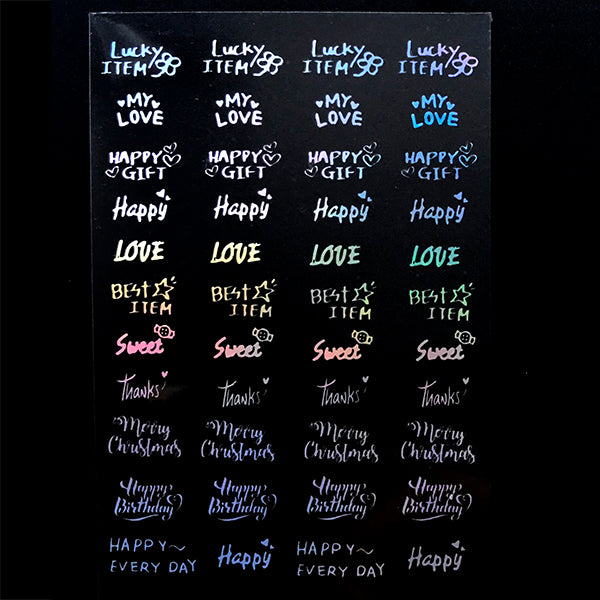 Lucky Lucky Lucky Lucky
ITEM ITEM ITEM ITEM
MY MY MY MY
LOVE LOVE LOVE LOVE
HAPPY HAPPY HAPPY HAPPY
GIFT GIFT GIFT GIFT
Happy Happy Happy Happy
LOVE LOVE LOVE LOVE
BEST BEST BEST BEST
ITEM ITEM ITEM ITEM
Sweet Sweet Sweet Sweet
Thanks Thanks Thanks Thanks
Merry Merry Merry Merry
Christmas Christmas Christmas Christmas
Happy Happy Happy Happy
Birthday Birthday Birthday Birthday
HAPPY~ Happy HAPPY~ Happy
EVERY DAY EVERY DAY